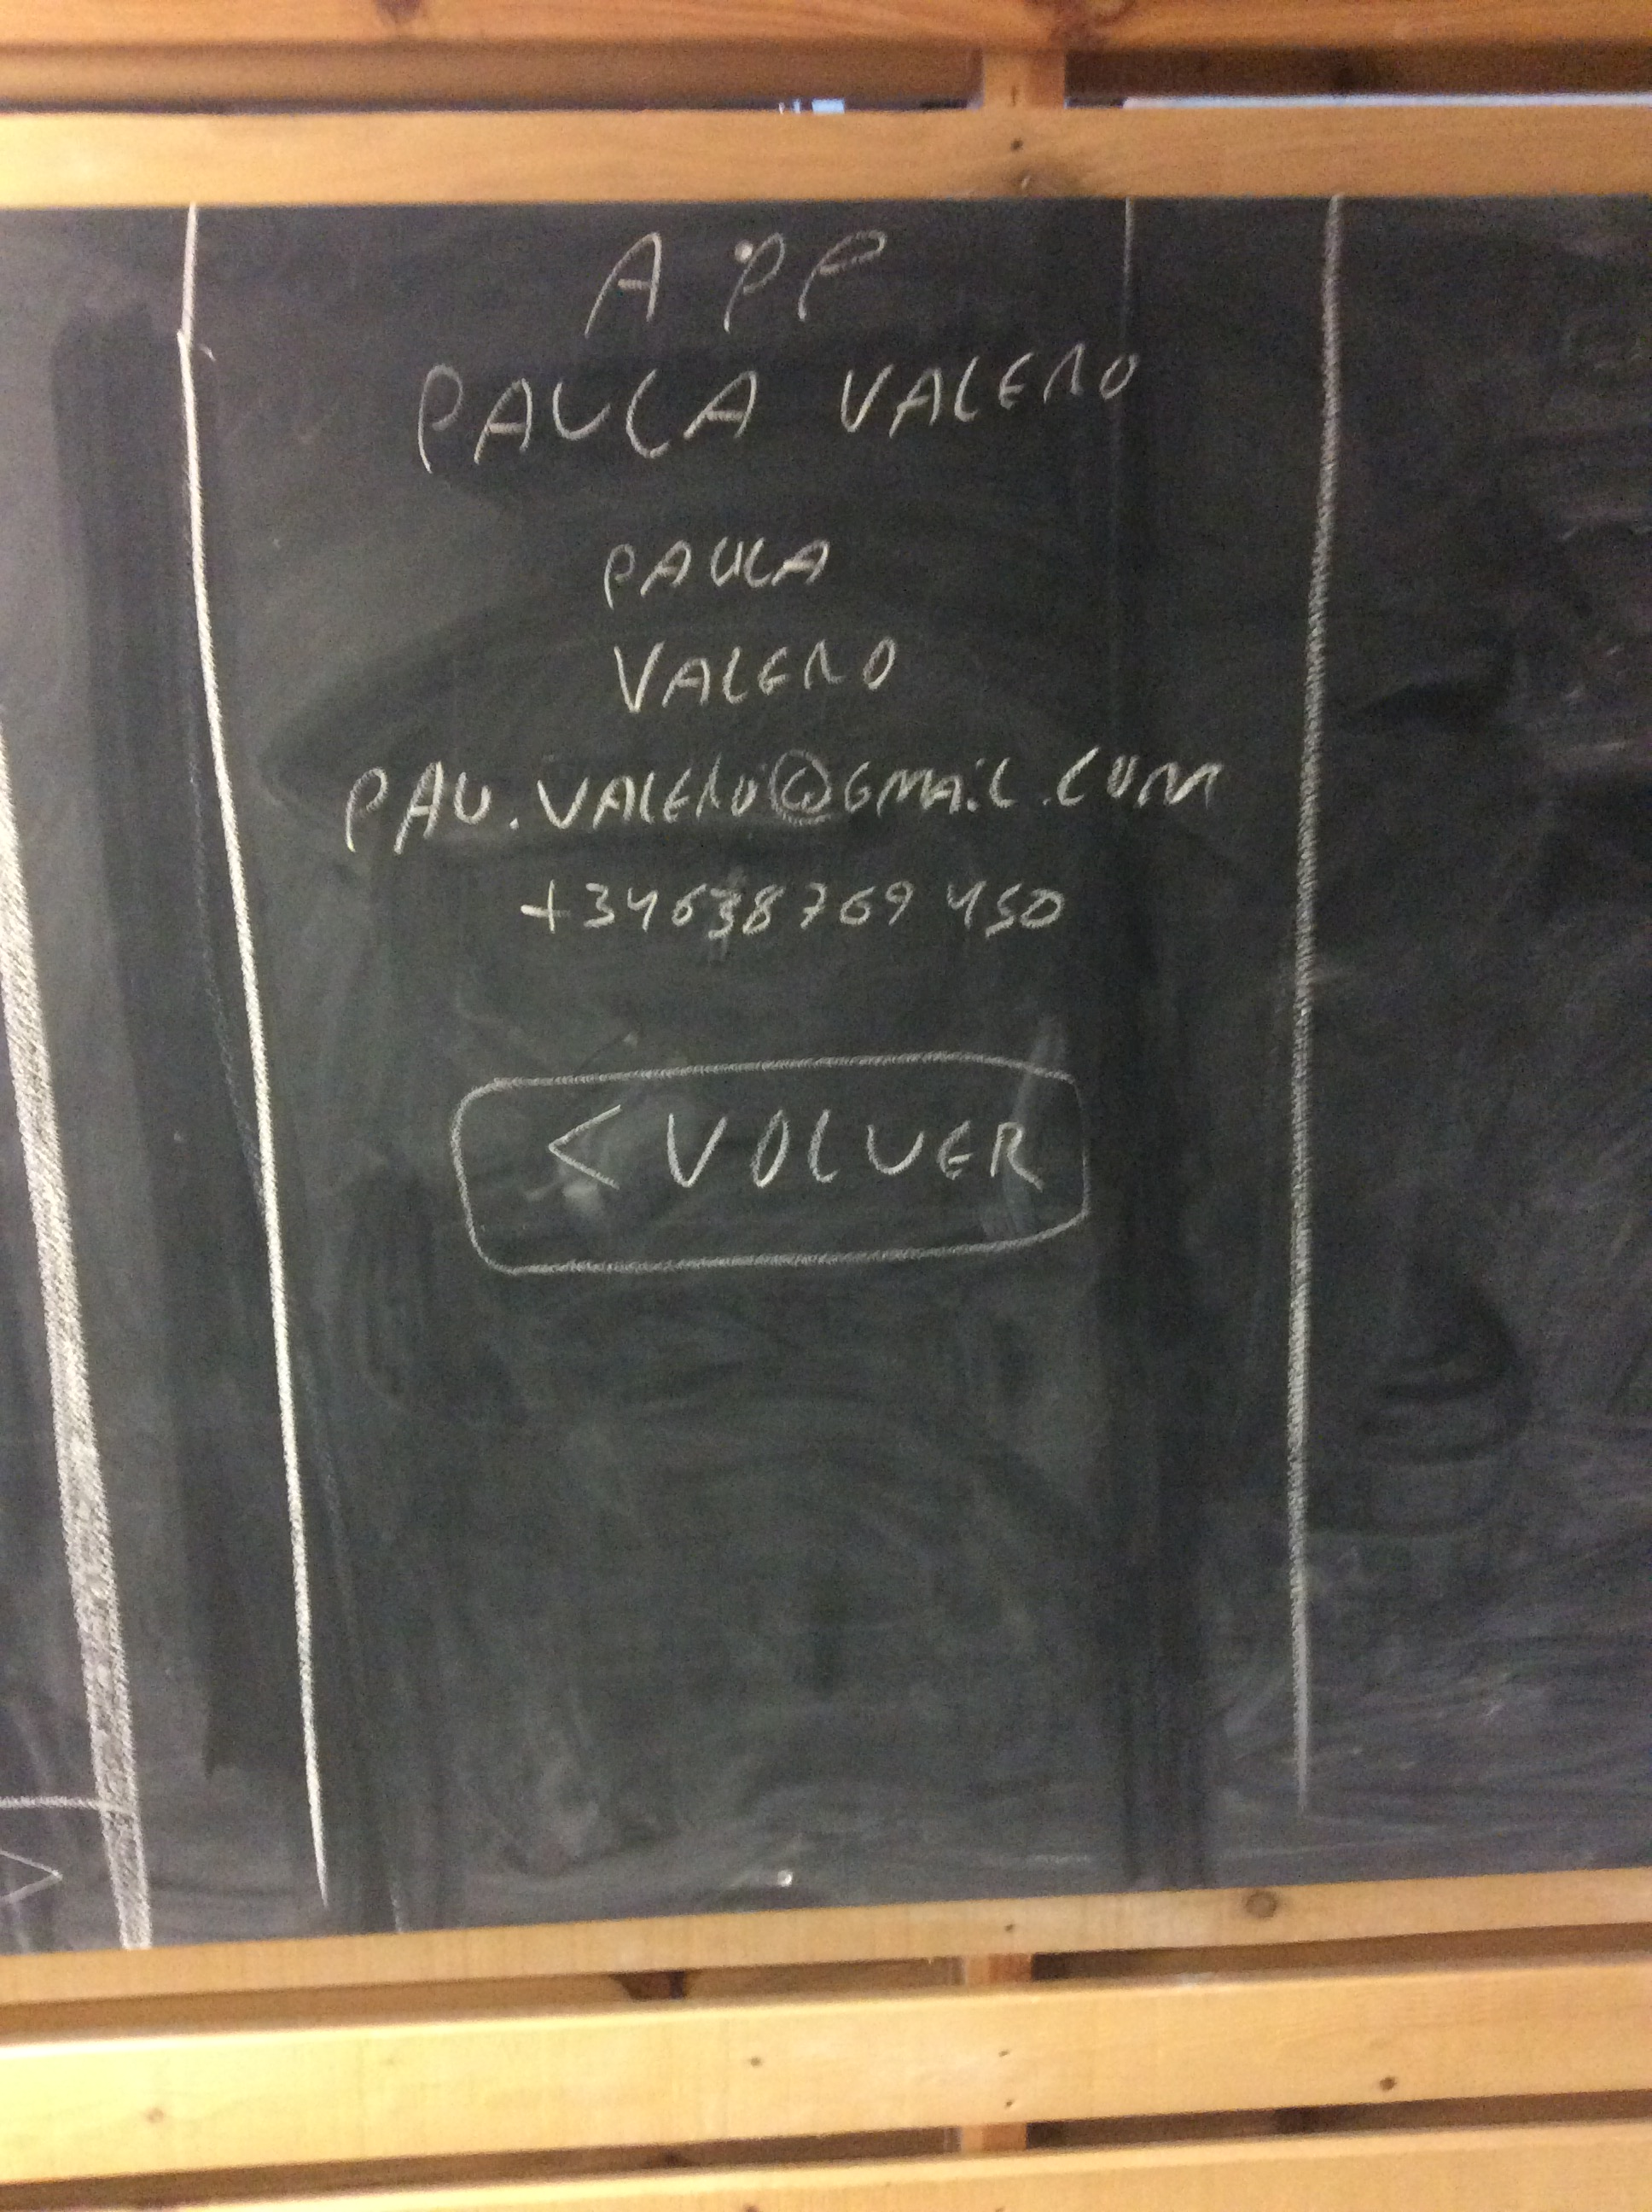 APP
PAULA VALERO
PAULA
VALERO
PAU.VALERO@GMAiL.COM
+34638769 450
< VOLVER